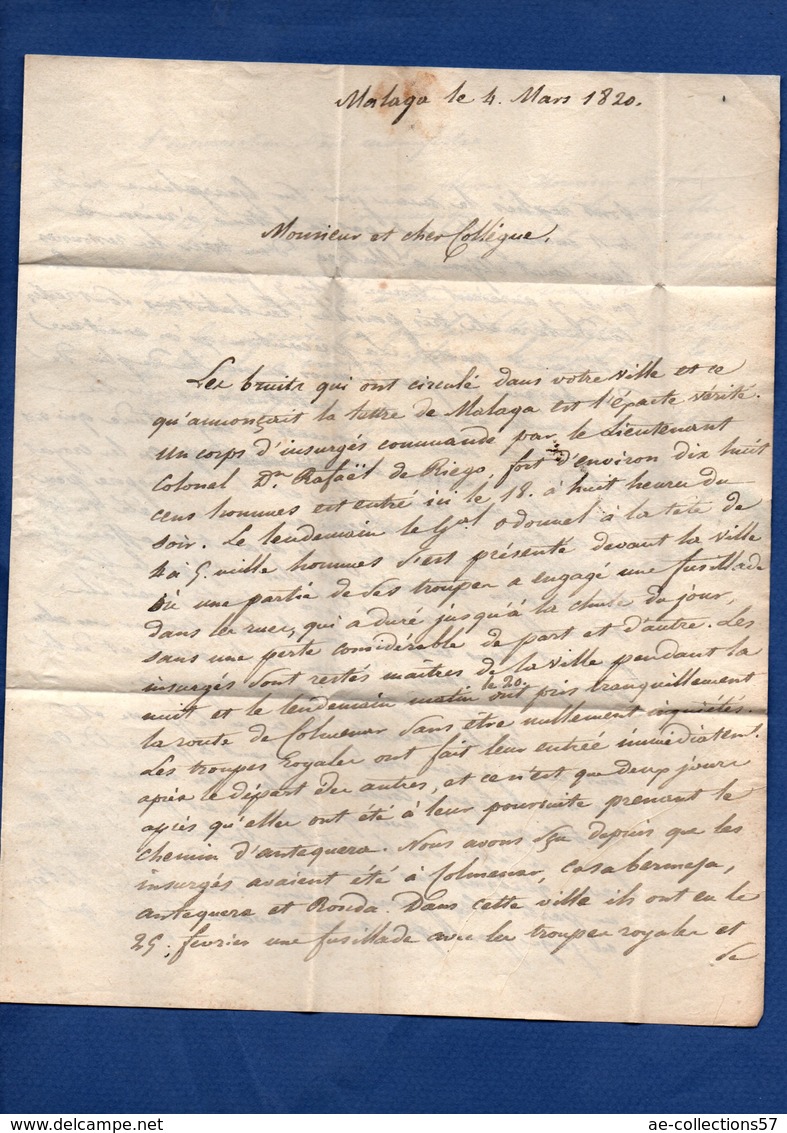 Malaga le 4. Mars 1820.
Monsieur et cher Collégue,
Les bruits qui ont circulé dans votre ville et ce
qu'annonçait la lettre de Malaga est l'éxacte vérité.
un corps d'insurgés commandé par le Lieutenant
Colonel Dn. Rafaël de Riego, fort d'environ dix huit
cens hommes est entré ici le 18. à huit heures du
soir. Le lendemain le Gal. Odonnel à la tête de
4 à 5. mille hommes s'est présenté devant la ville
où une partie de ses troupes a engagé une fusillade
dans les rues, qui a duré jusqu'à la chute du jour,
sans une perte considérable de part et d'autre. Les
insurgés sont restés maîtres de la ville pendant la
nuit et le lendemain matin le 20. ont pris tranquillement
la route de Colmenar sans être nullement inquiétés.
Les troupes Royales ont fait leur entrée immédiatemt.
après le départ des autres, et ce n'est que deux jours
après qu'elles ont été à leur poursuite prenant le
chemin d'antequera. Nous avons sçu depuis que les
insurgés avaient été à Colmenar, Casabermeja,
antequera et Ronda. Dans cette ville ils ont eu le
25. fevrier une fusillade avec les troupes royales et
se
ae-collections57